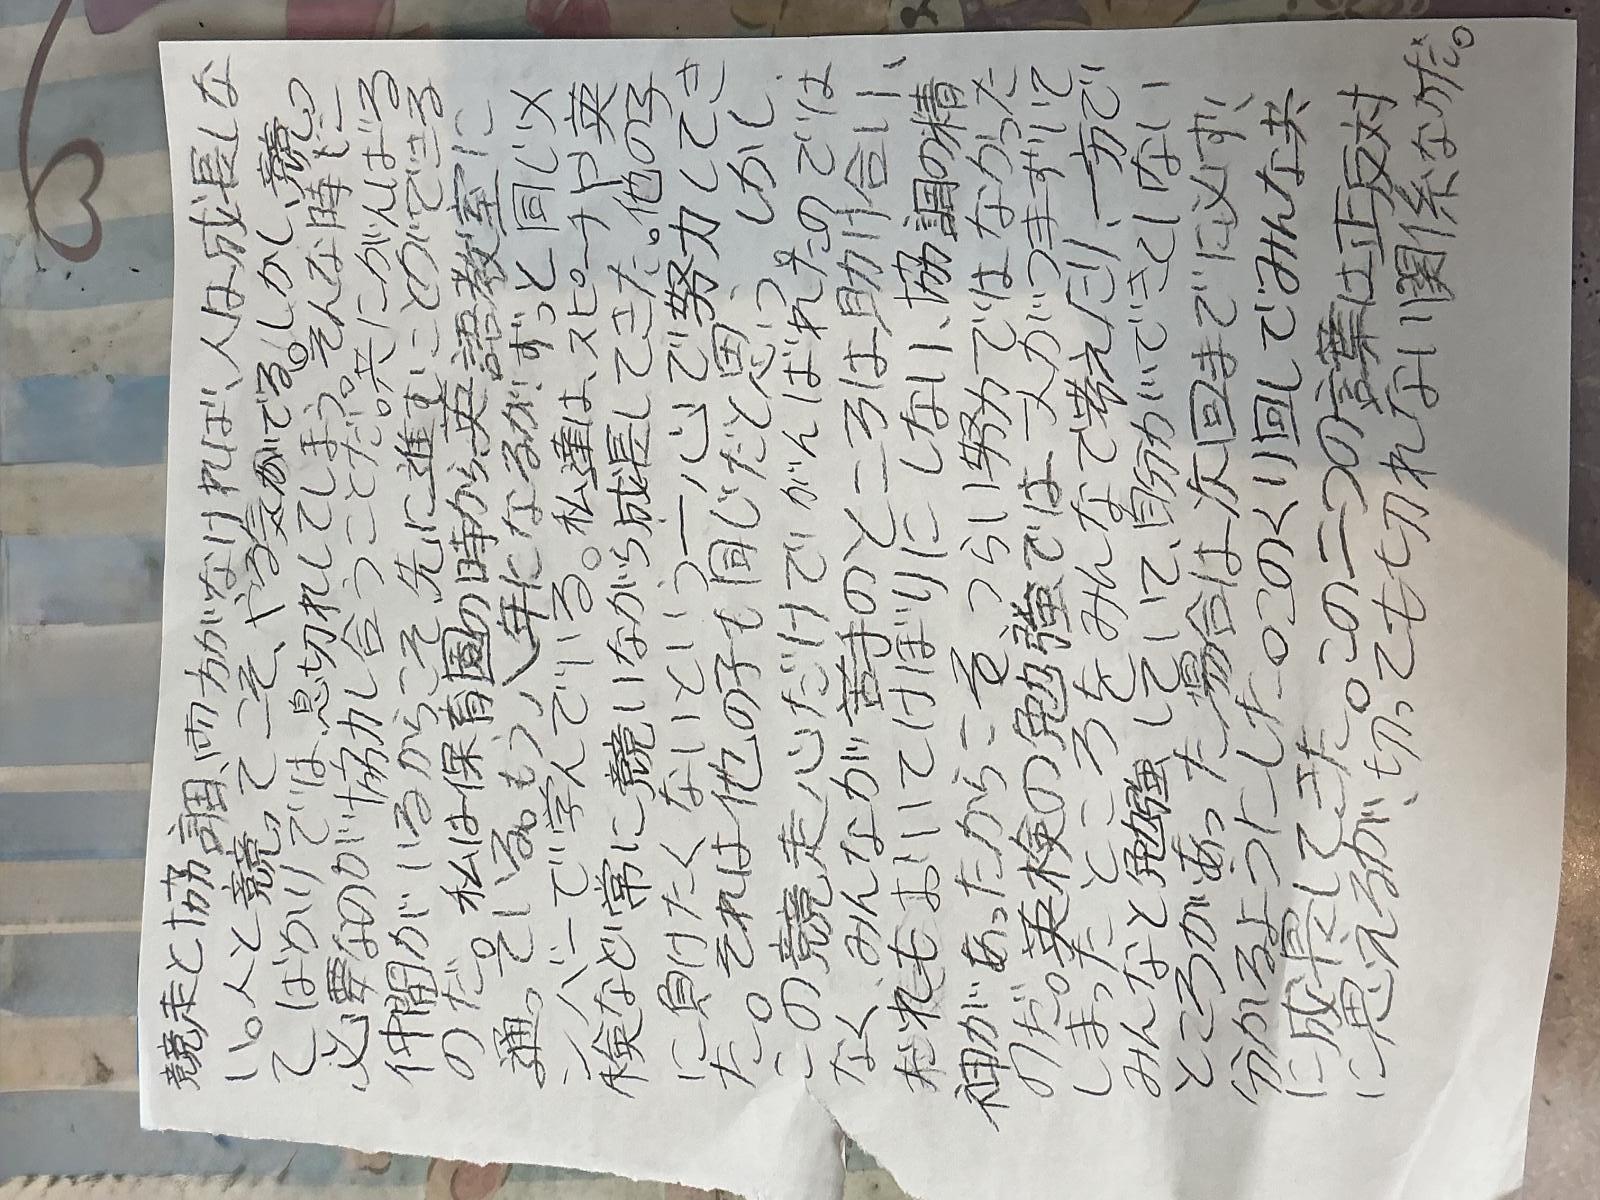 競走と協調、両方がなければ、人は成長しな
い。人と競ってこそ、やる気がでる。しかし、競っ
てばかりでは、息切れしてしまう。そんな時に
必要なのが協力し合うことだ。共にがんばる
仲間がいるからこそ、先に進むことのできる
のだ。私は保育園の時から、英語教室に
通っている。もう八年になるが、ずっと同じメ
ンバーで学んでいる。私達は、スピーチや英
検など常に競いながら成長してきた。他の子
に負けたくないという一心で努力してき
た。それは他の子も同じだと思う。しかし
この競走心だけでがんばれたのでは
なく、みんなが苦手のところは助け合い、
だれもおいてけぼりにしない、協調の精
神があったからこそつらい努力ではなかった
のだ。英検の勉強では一人がつまずいて
しまったところをみんなで考えたり、一方で
みんなと勉強していて、自分ができてしない
ところがあった場合は次回までに必ず、
分かるようにした。このくり回しでみんな共
に成長してきた。この二つの言葉は正反対
に思えるが、切っても切れない関係なのだ。